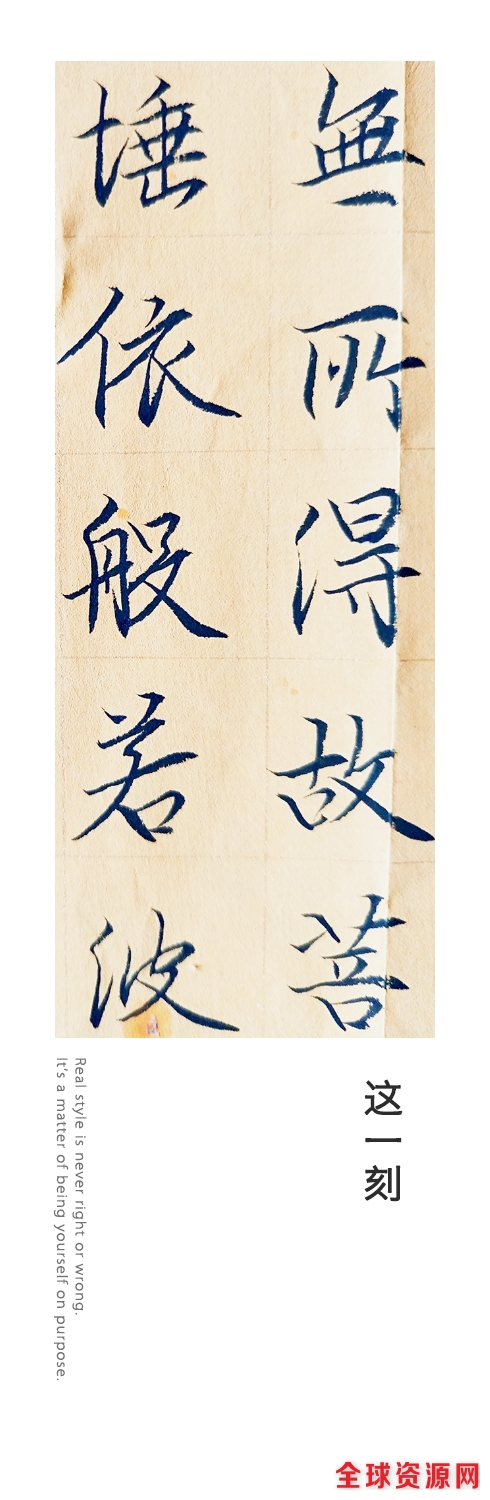 無所得故菩
埵依般若波
这一刻
Real style is never right or wrong.
It's a matter of being yourself on purpose.
全球资源网